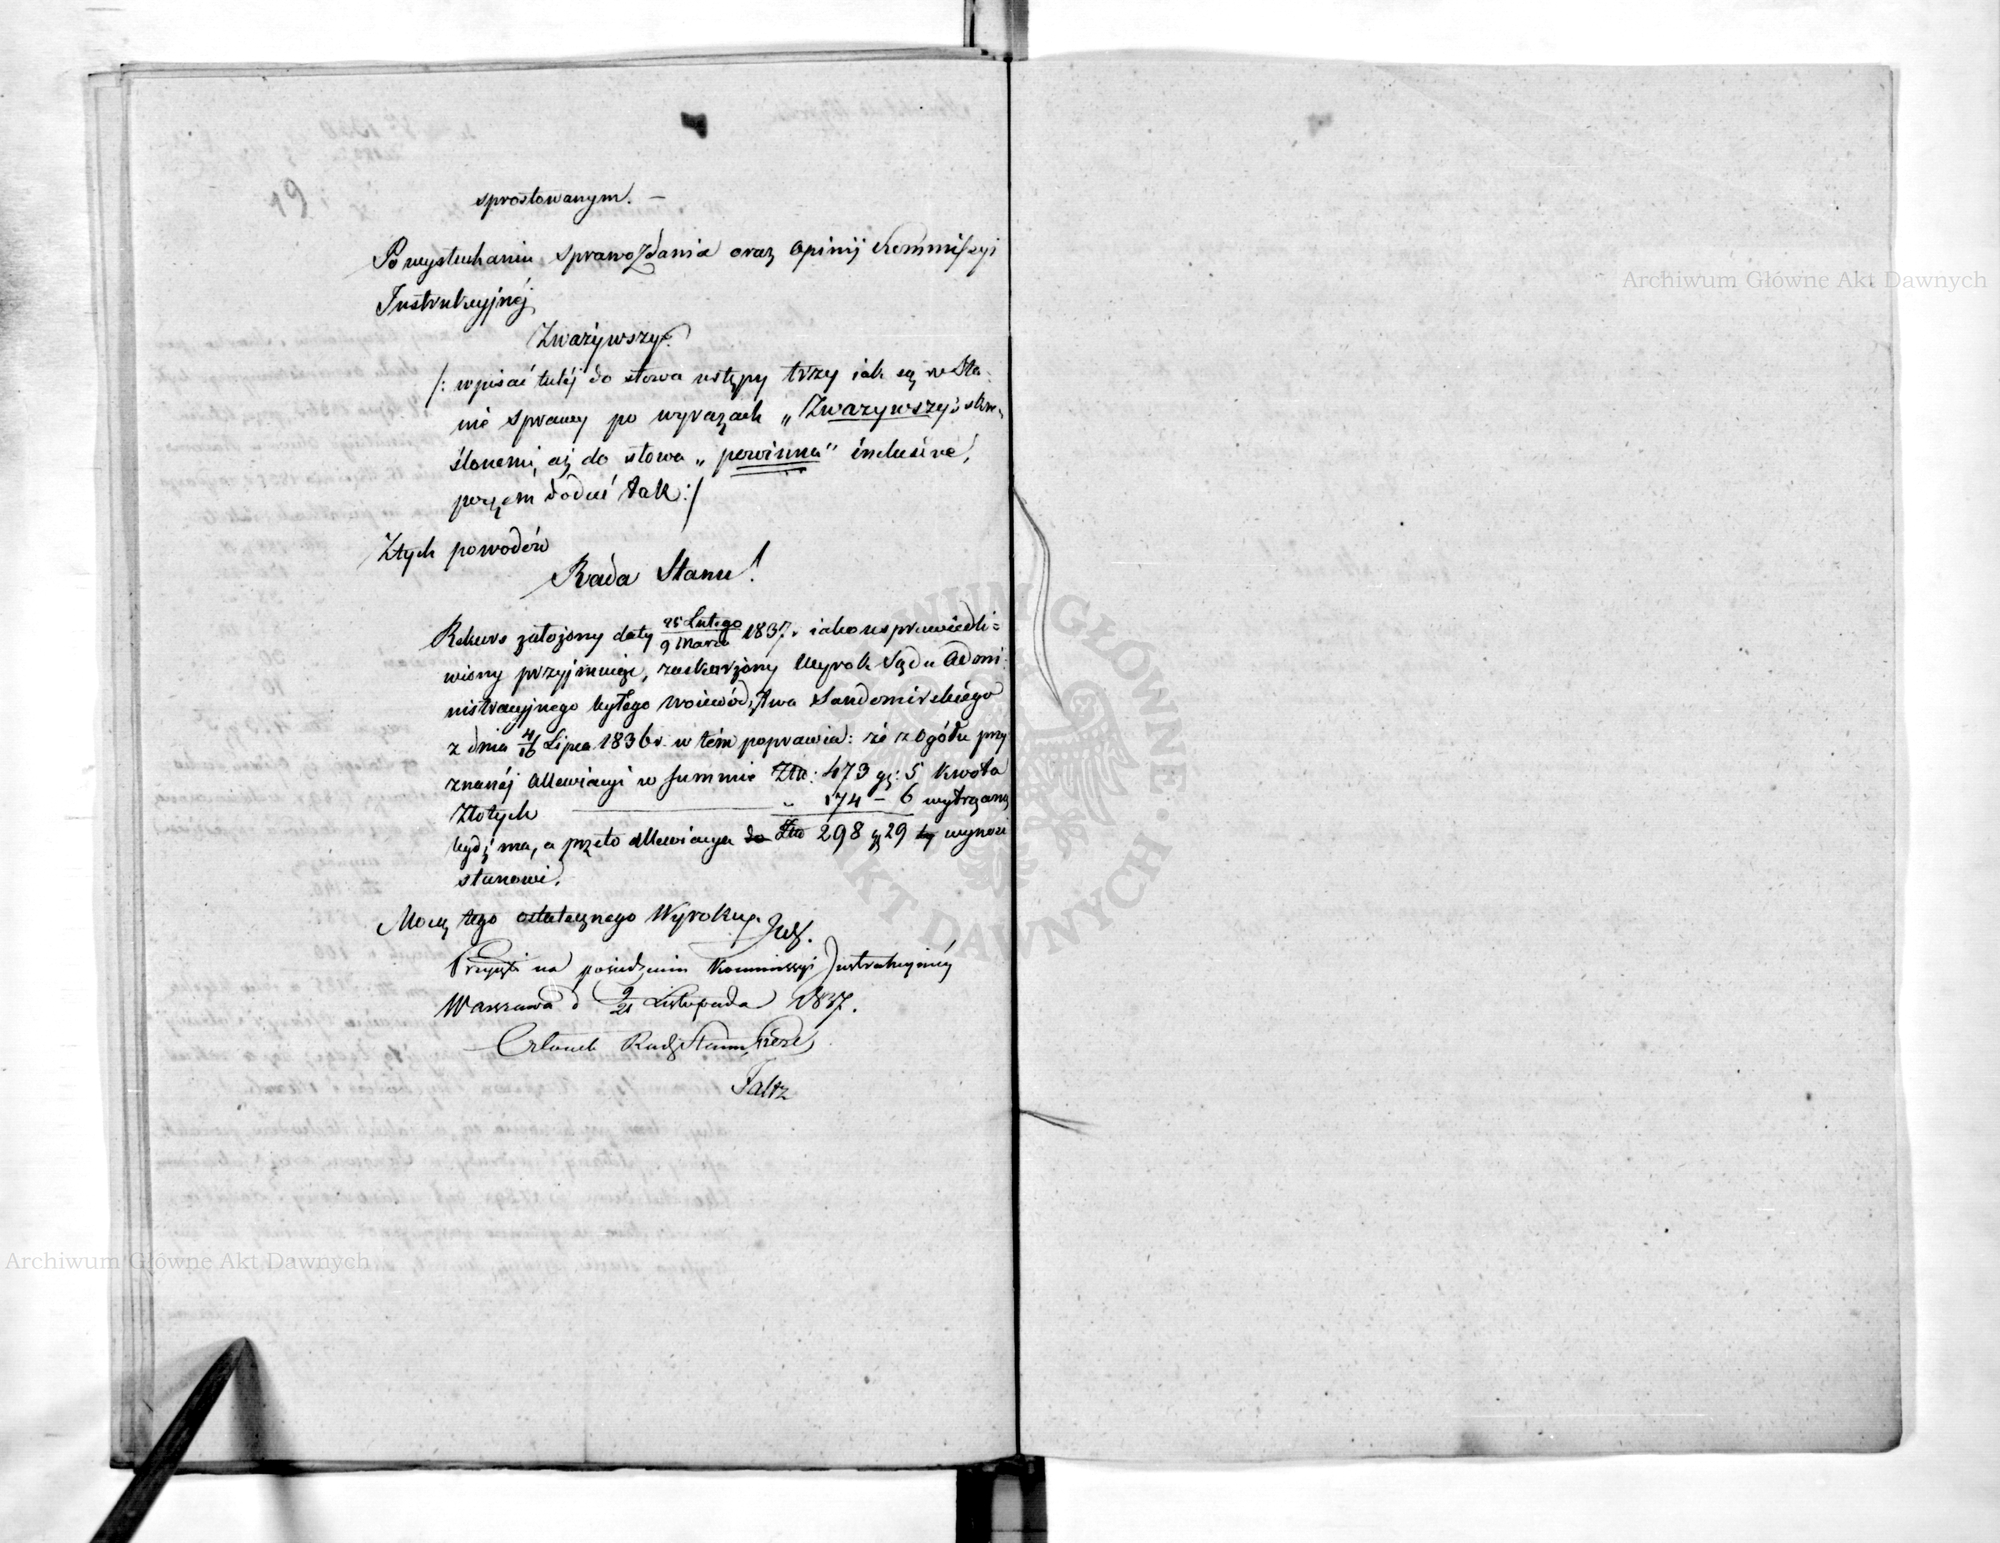 19
sprostowanym. —
Po wysłuchaniu sprawozdania oraz Opinij Kommissyi
Instrukcyjnéj
Zważywszy.
/: wpisać tutéj do słowa ustępy trzy iak są w Sta-
nie sprawy po wyrazach „Zważywszy" skre-
ślonemi, aż do słowa „powinna" inclusive,
poczem dodać tak :/
Z tych powodów
Rada Stanu!
Rekurs założony daty 25 Lutego
9 Marca 1837. iako usprawiedli=
wiony przyjmuiąc, zaskarżony Wyrok Sądu Admi-
nistracyjnego byłego Województwa Sandomirskiego
z dnia 4/16 Lipca 1836 r. w tém poprawia: że z ogółu przy
znanéj allewiacyi w summie Złt: 473 gr: 5 kwota
Złotych — „ 174 — 6 wytrąconą
bydź ma, a przeto allewiacya do Złt 298 gr 29 wynosi
stanowi.
Mocą tego ostatecznego Wyroku.
Przyjęty na posiedzeniu Kommissyi Instrukcyjnéj
Warszawa d 9/21 Listopada 1837.
Członek Rady Stanu
Faltz
Archiwum Główne Akt Dawnych
Archiwum Główne Akt Dawnych
ARCHIWUM GŁÓWNE AKT DAWNYCH